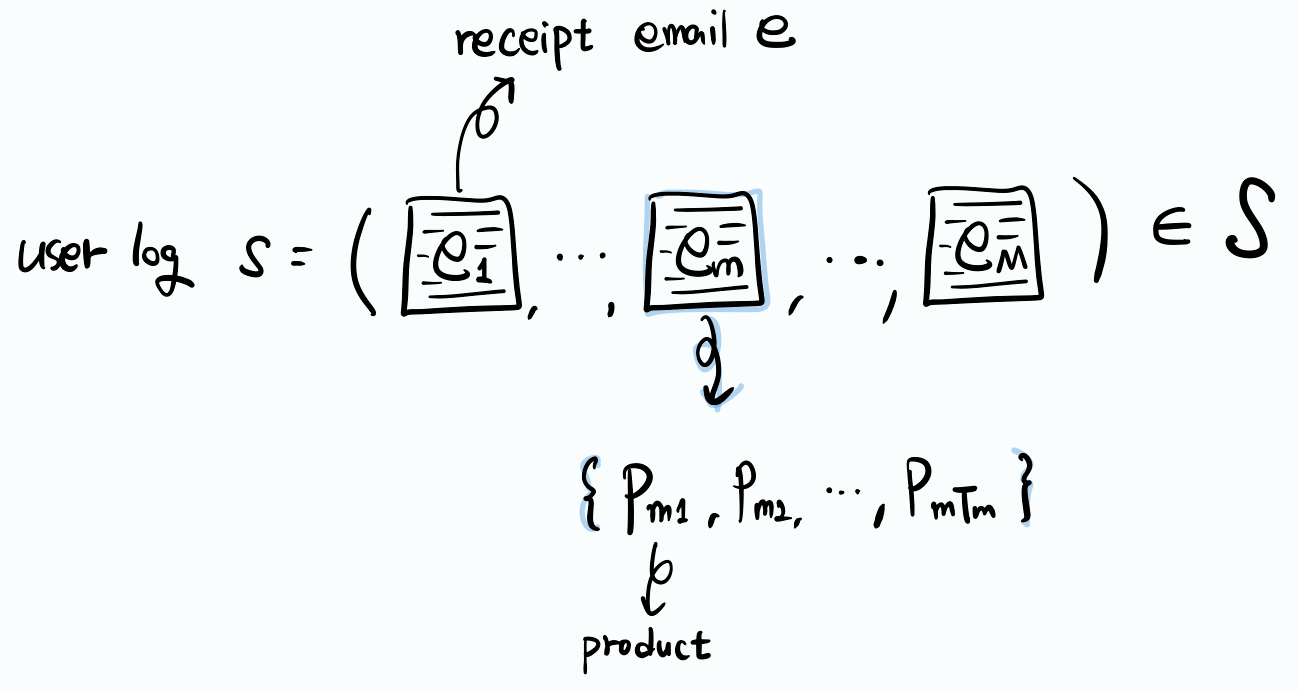 receipt email e
user log s = ( e1, ..., em, ..., eM ) ∈ S
{ Pm1, Pm2, ..., PmTm }
product